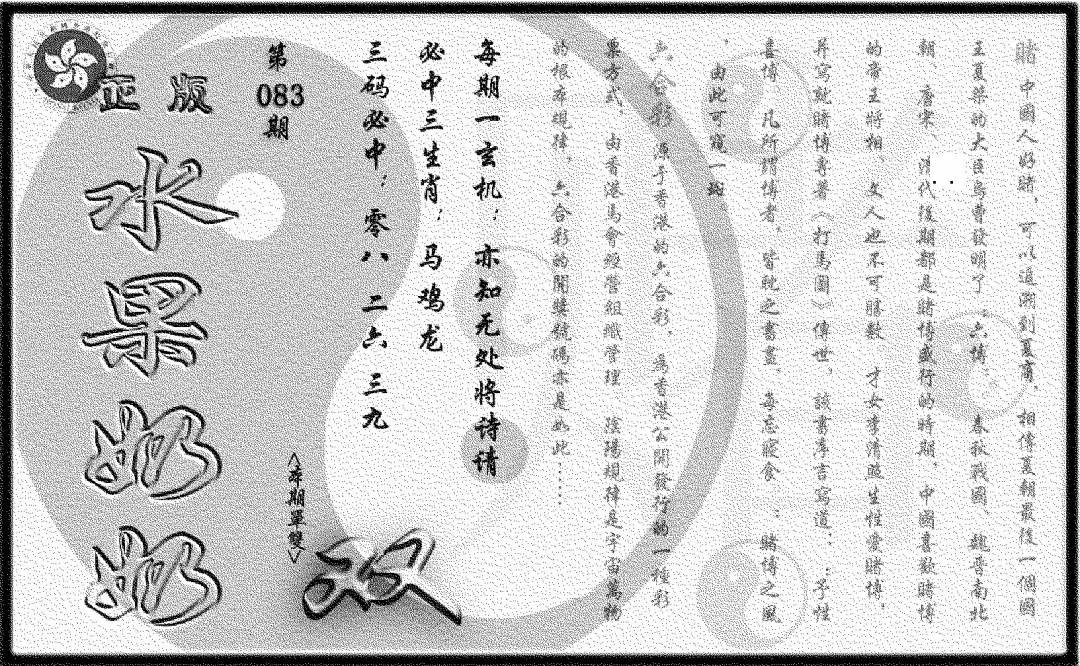 賭 中國人好賭，可以追溯到夏商，相傳夏朝最後一個國
王夏桀的大臣烏曹發明了:六博:、春秋戰國、魏晉南北
朝、唐宋、清代後期都是賭博盛行的時期，中國喜歡賭博
的帝王將相 文人也不可勝數 才女李清照生性愛賭博，
并寫就賭博專著《打馬圖》傳世，該書序言寫道:，:予性
喜博，凡所謂博者，皆耽之書晝，每忘寢食 :賭博之風
，由此可窺一斑
六合彩 源于香港的六合彩，為香港公開發行的一種彩
票方式，由香港馬會經營組織管理 陰陽規律是宇宙萬物
的根本規律，六合彩的開獎號碼亦是如此……
每期一玄机：亦知无处将诗请
必中三生肖：马鸡龙
三码必中：零八 二六 三九
第083期
<本期單雙>
双
正版
水果奶奶